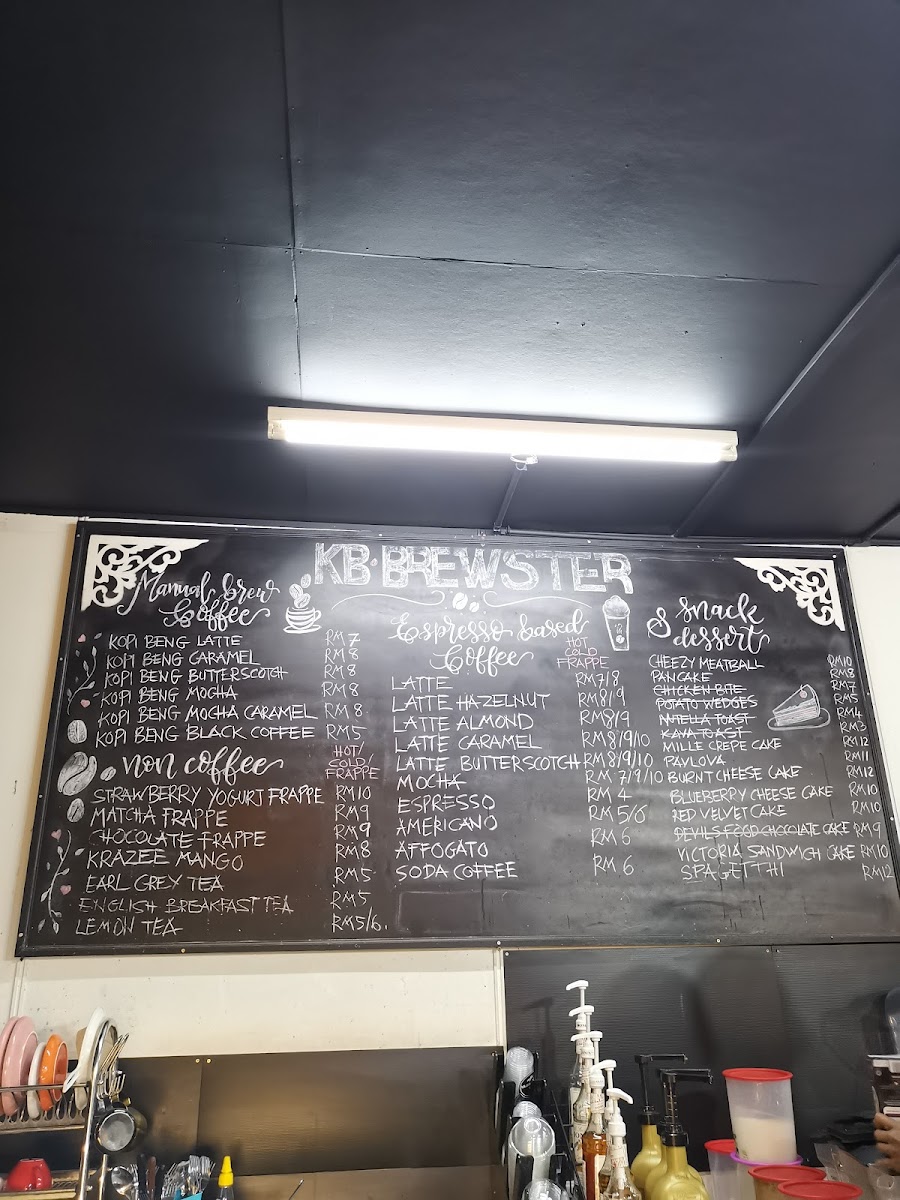 KB·BREWSTER
Manual brew
Coffee
KOPI BENG LATTE RM7
KOPI BENG CARAMEL RM8
KOPI BENG BUTTERSCOTCH RM8
KOPI BENG MOCHA RM8
KOPI BENG MOCHA CARAMEL RM8
KOPI BENG BLACK COFFEE RM5
non coffee
HOT/
COLD/
FRAPPE
STRAWBERRY YOGURT FRAPPE RM10
MATCHA FRAPPE RM9
CHOCOLATE FRAPPE RM9
KRAZEE MANGO RM8
EARL GREY TEA RM5
ENGLISH BREAKFAST TEA RM5
LEMON TEA RM5/6.
Espresso based
Coffee
HOT
COLD
FRAPPE
LATTE RM7/8
LATTE HAZELNUT RM8/9
LATTE ALMOND RM8/9
LATTE CARAMEL RM8/9/10
LATTE BUTTERSCOTCH RM8/9/10
MOCHA RM 7/9/10
ESPRESSO RM 4
AMERICANO RM 5/6
AFFOGATO RM 6
SODA COFFEE RM 6
Snack
& dessert
CHEEZY MEATBALL RM10
PANCAKE RM8
CHICKEN BITE RM7
POTATO WEDGES RM5
NUTELLA TOAST RM4
KAYA TOAST RM3
MILLE CREPE CAKE RM12
PAVLOVA RM11
BURNT CHEESE CAKE RM12
BLUEBERRY CHEESE CAKE RM10
RED VELVET CAKE RM10
DEVILS FOOD CHOCOLATE CAKE RM9
VICTORIA SANDWICH CAKE RM10
SPAGETTHI RM12